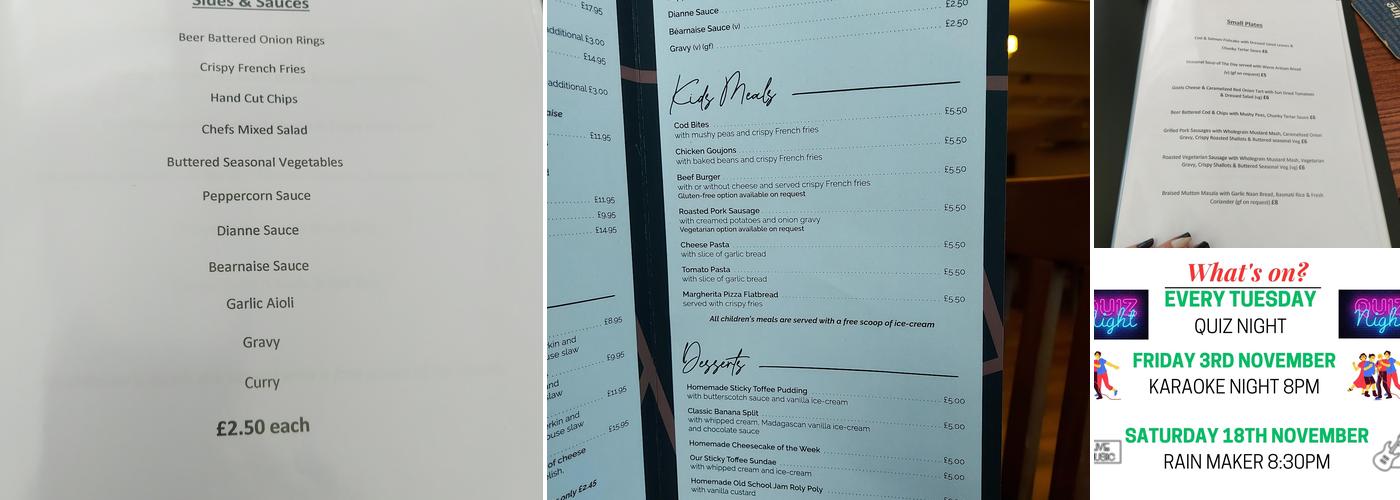 Sides & Sauces
Beer Battered Onion Rings
Crispy French Fries
Hand Cut Chips
Chefs Mixed Salad
Buttered Seasonal Vegetables
Peppercorn Sauce
Dianne Sauce
Bearnaise Sauce
Garlic Aioli
Gravy
Curry
£2.50 each
£17.95
additional £3.00
£14.95
additional £3.00
£11.95
£11.95
£9.95
£14.95
£8.95
kin and
use slaw
£9.95
and
slaw
£11.95
rkin and
ouse slaw
£15.95
of cheese
only £2.45
Dianne Sauce £2.50
Béarnaise Sauce (v) £2.50
Gravy (v) (gf)
Kids Meals
Cod Bites £5.50
with mushy peas and crispy French fries
Chicken Goujons £5.50
with baked beans and crispy French fries
Beef Burger £5.50
with or without cheese and served crispy French fries
Gluten-free option available on request
Roasted Pork Sausage £5.50
with creamed potatoes and onion gravy
Vegetarian option available on request
Cheese Pasta £5.50
with slice of garlic bread
Tomato Pasta £5.50
with slice of garlic bread
Margherita Pizza Flatbread £5.50
served with crispy fries
All children's meals are served with a free scoop of ice-cream
Desserts
Homemade Sticky Toffee Pudding £5.00
with butterscotch sauce and vanilla ice-cream
Classic Banana Split £5.00
with whipped cream, Madagascan vanilla ice-cream
and chocolate sauce
Homemade Cheesecake of the Week £5.00
Our Sticky Toffee Sundae £5.00
with whipped cream and ice-cream
Homemade Old School Jam Roly Poly
with vanilla custard
Small Plates
Cod & Salmon Fishcake with Dressed Salad Leaves &
Chunky Tartar Sauce £6
Seasonal Soup of The Day served with Warm Artisan Bread
(v) (gf on request) £5
Goats Cheese & Caramelized Red Onion Tart with Sun Dried Tomatoes
& Dressed Salad (vg) £6
Beer Battered Cod & Chips with Mushy Peas, Chunky Tartar Sauce £6
Grilled Pork Sausages with Wholegrain Mustard Mash, Caramelized Onion
Gravy, Crispy Roasted Shallots & Buttered seasonal Veg £6
Roasted Vegetarian Sausage with Wholegrain Mustard Mash, Vegetarian
Gravy, Crispy Shallots & Buttered Seasonal Veg (vg) £6
Braised Mutton Masala with Garlic Naan Bread, Basmati Rice & Fresh
Coriander (gf on request) £8
What's on?
EVERY TUESDAY
QUIZ NIGHT
QUIZ
ight
QUIZ
Night
FRIDAY 3RD NOVEMBER
KARAOKE NIGHT 8PM
SATURDAY 18TH NOVEMBER
RAIN MAKER 8:30PM